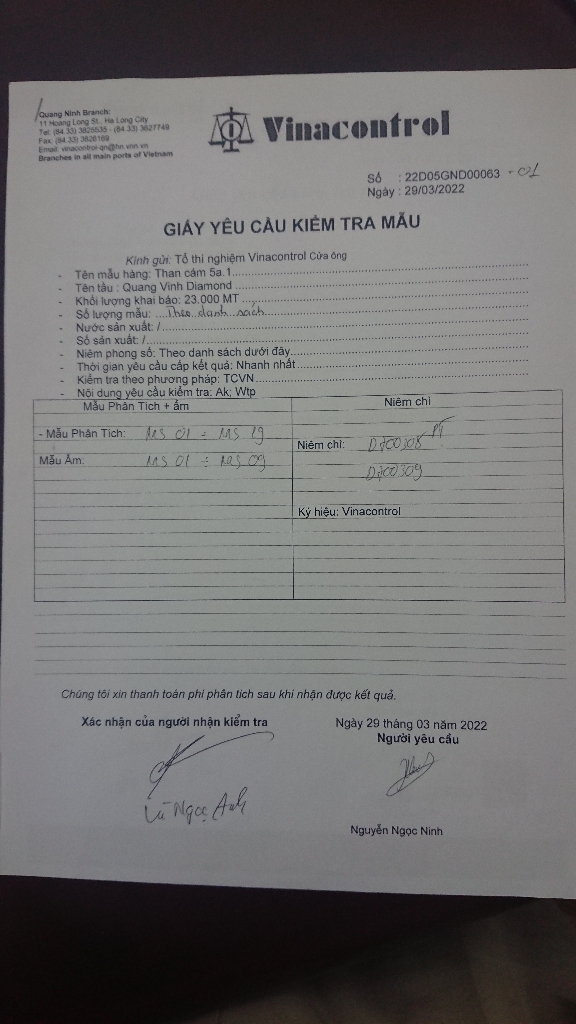 Quang Ninh Branch:
11 Hoang Long St., Ha Long City
Tel: (84.33) 3826535 - (84.33) 3627749
Fax: (84.33) 3826169
Email: vinacontrol-qn@hn.vnn.vn
Branches in all main ports of Vietnam
Vinacontrol
Số : 22D05GND00063 - 01
Ngày : 29/03/2022
GIẤY YÊU CẦU KIỂM TRA MẪU
Kính gửi: Tổ thí nghiệm Vinacontrol Cửa ông
- Tên mẫu hàng: Than cám 5a.1
- Tên tàu : Quang Vinh Diamond
- Khối lượng khai báo: 23.000 MT
- Số lượng mẫu: Theo danh sách
- Nước sản xuất: /
- Số sản xuất: /
- Niêm phong số: Theo danh sách dưới đây
- Thời gian yêu cầu cấp kết quả: Nhanh nhất
- Kiểm tra theo phương pháp: TCVN
- Nội dung yêu cầu kiểm tra: Ak; Wtp
Mẫu Phân Tích + ẩm Niêm chì
- Mẫu Phân Tích: MS 01 ÷ MS 19 Niêm chì: D700308 PT
Mẫu Ẩm: MS 01 ÷ MS 09 D700309
Ký hiệu: Vinacontrol
Chúng tôi xin thanh toán phí phân tích sau khi nhận được kết quả.
Xác nhận của người nhận kiểm tra Ngày 29 tháng 03 năm 2022
Người yêu cầu
Vũ Ngọc Anh
Nguyễn Ngọc Ninh